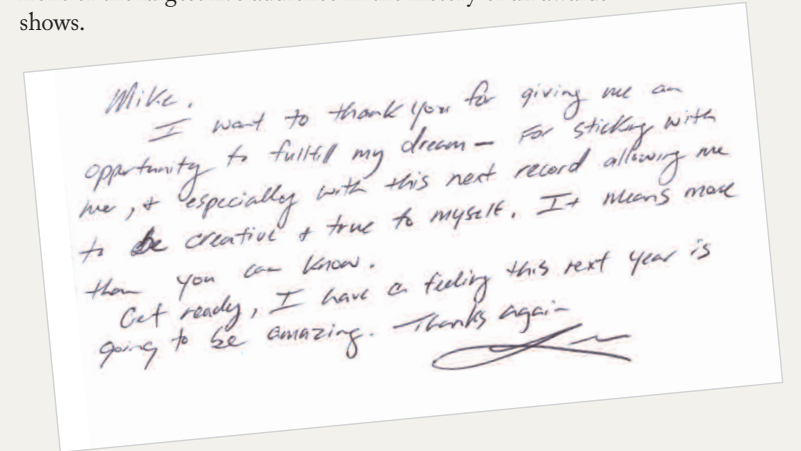 shows.
Mike.
I want to thank you for giving me an
opportunity to fulfill my dream – For sticking with
me, + especially with this next record allowing me
to be creative + true to myself. It means more
than you can know.
Get ready, I have a feeling this next year is
going to be amazing. Thanks again